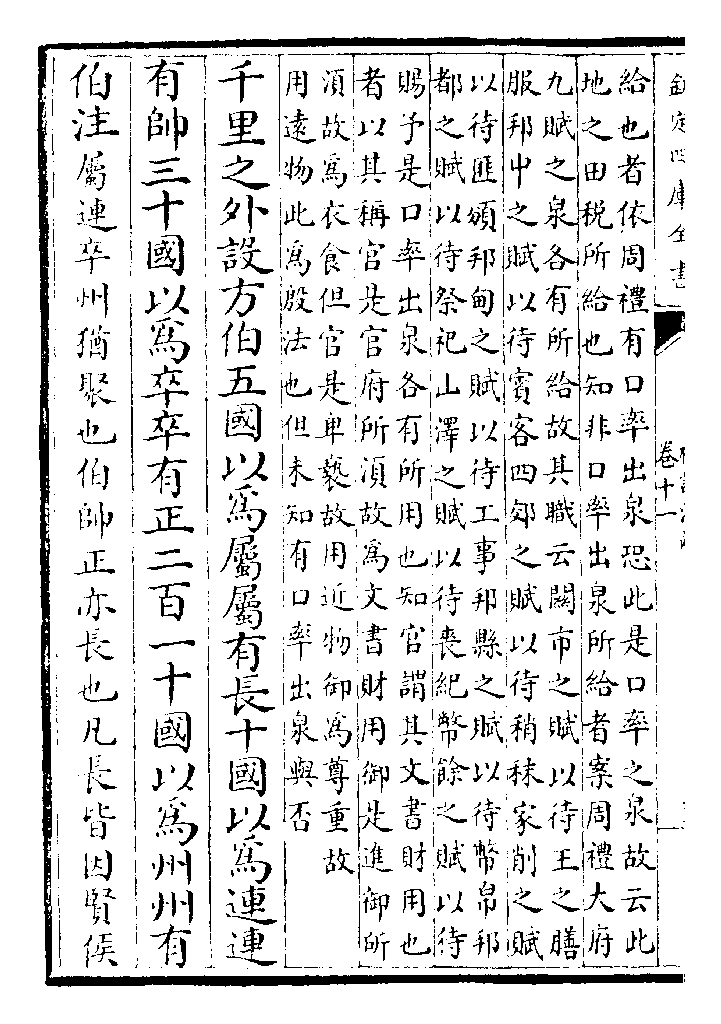 欽定四庫全書
卷十一
給也者依周禮有口率出泉恐此是口率之泉故云此
地之田税所給也知非口率出泉所給者案周禮大府
九賦之泉各有所給故其職云關市之賦以待王之膳
服邦中之賦以待賓客四郊之賦以待稍秣家削之賦
以待匪頒邦甸之賦以待工事邦縣之賦以待幣帛邦
都之賦以待祭祀山澤之賦以待喪紀幣餘之賦以待
賜予是口率出泉各有所用也知官謂其文書財用也
者以其稱官是官府所湏故爲文書財用御是進御所
湏故爲衣食但官是卑褻故用近物御爲尊重故
用遠物此爲殷法也但未知有口率出泉與否
千里之外設方伯五國以爲屬屬有長十國以爲連連
有帥三十國以爲卒卒有正二百一十國以爲州州有
伯注屬連卒州猶聚也伯帥正亦長也凡長皆因賢侯